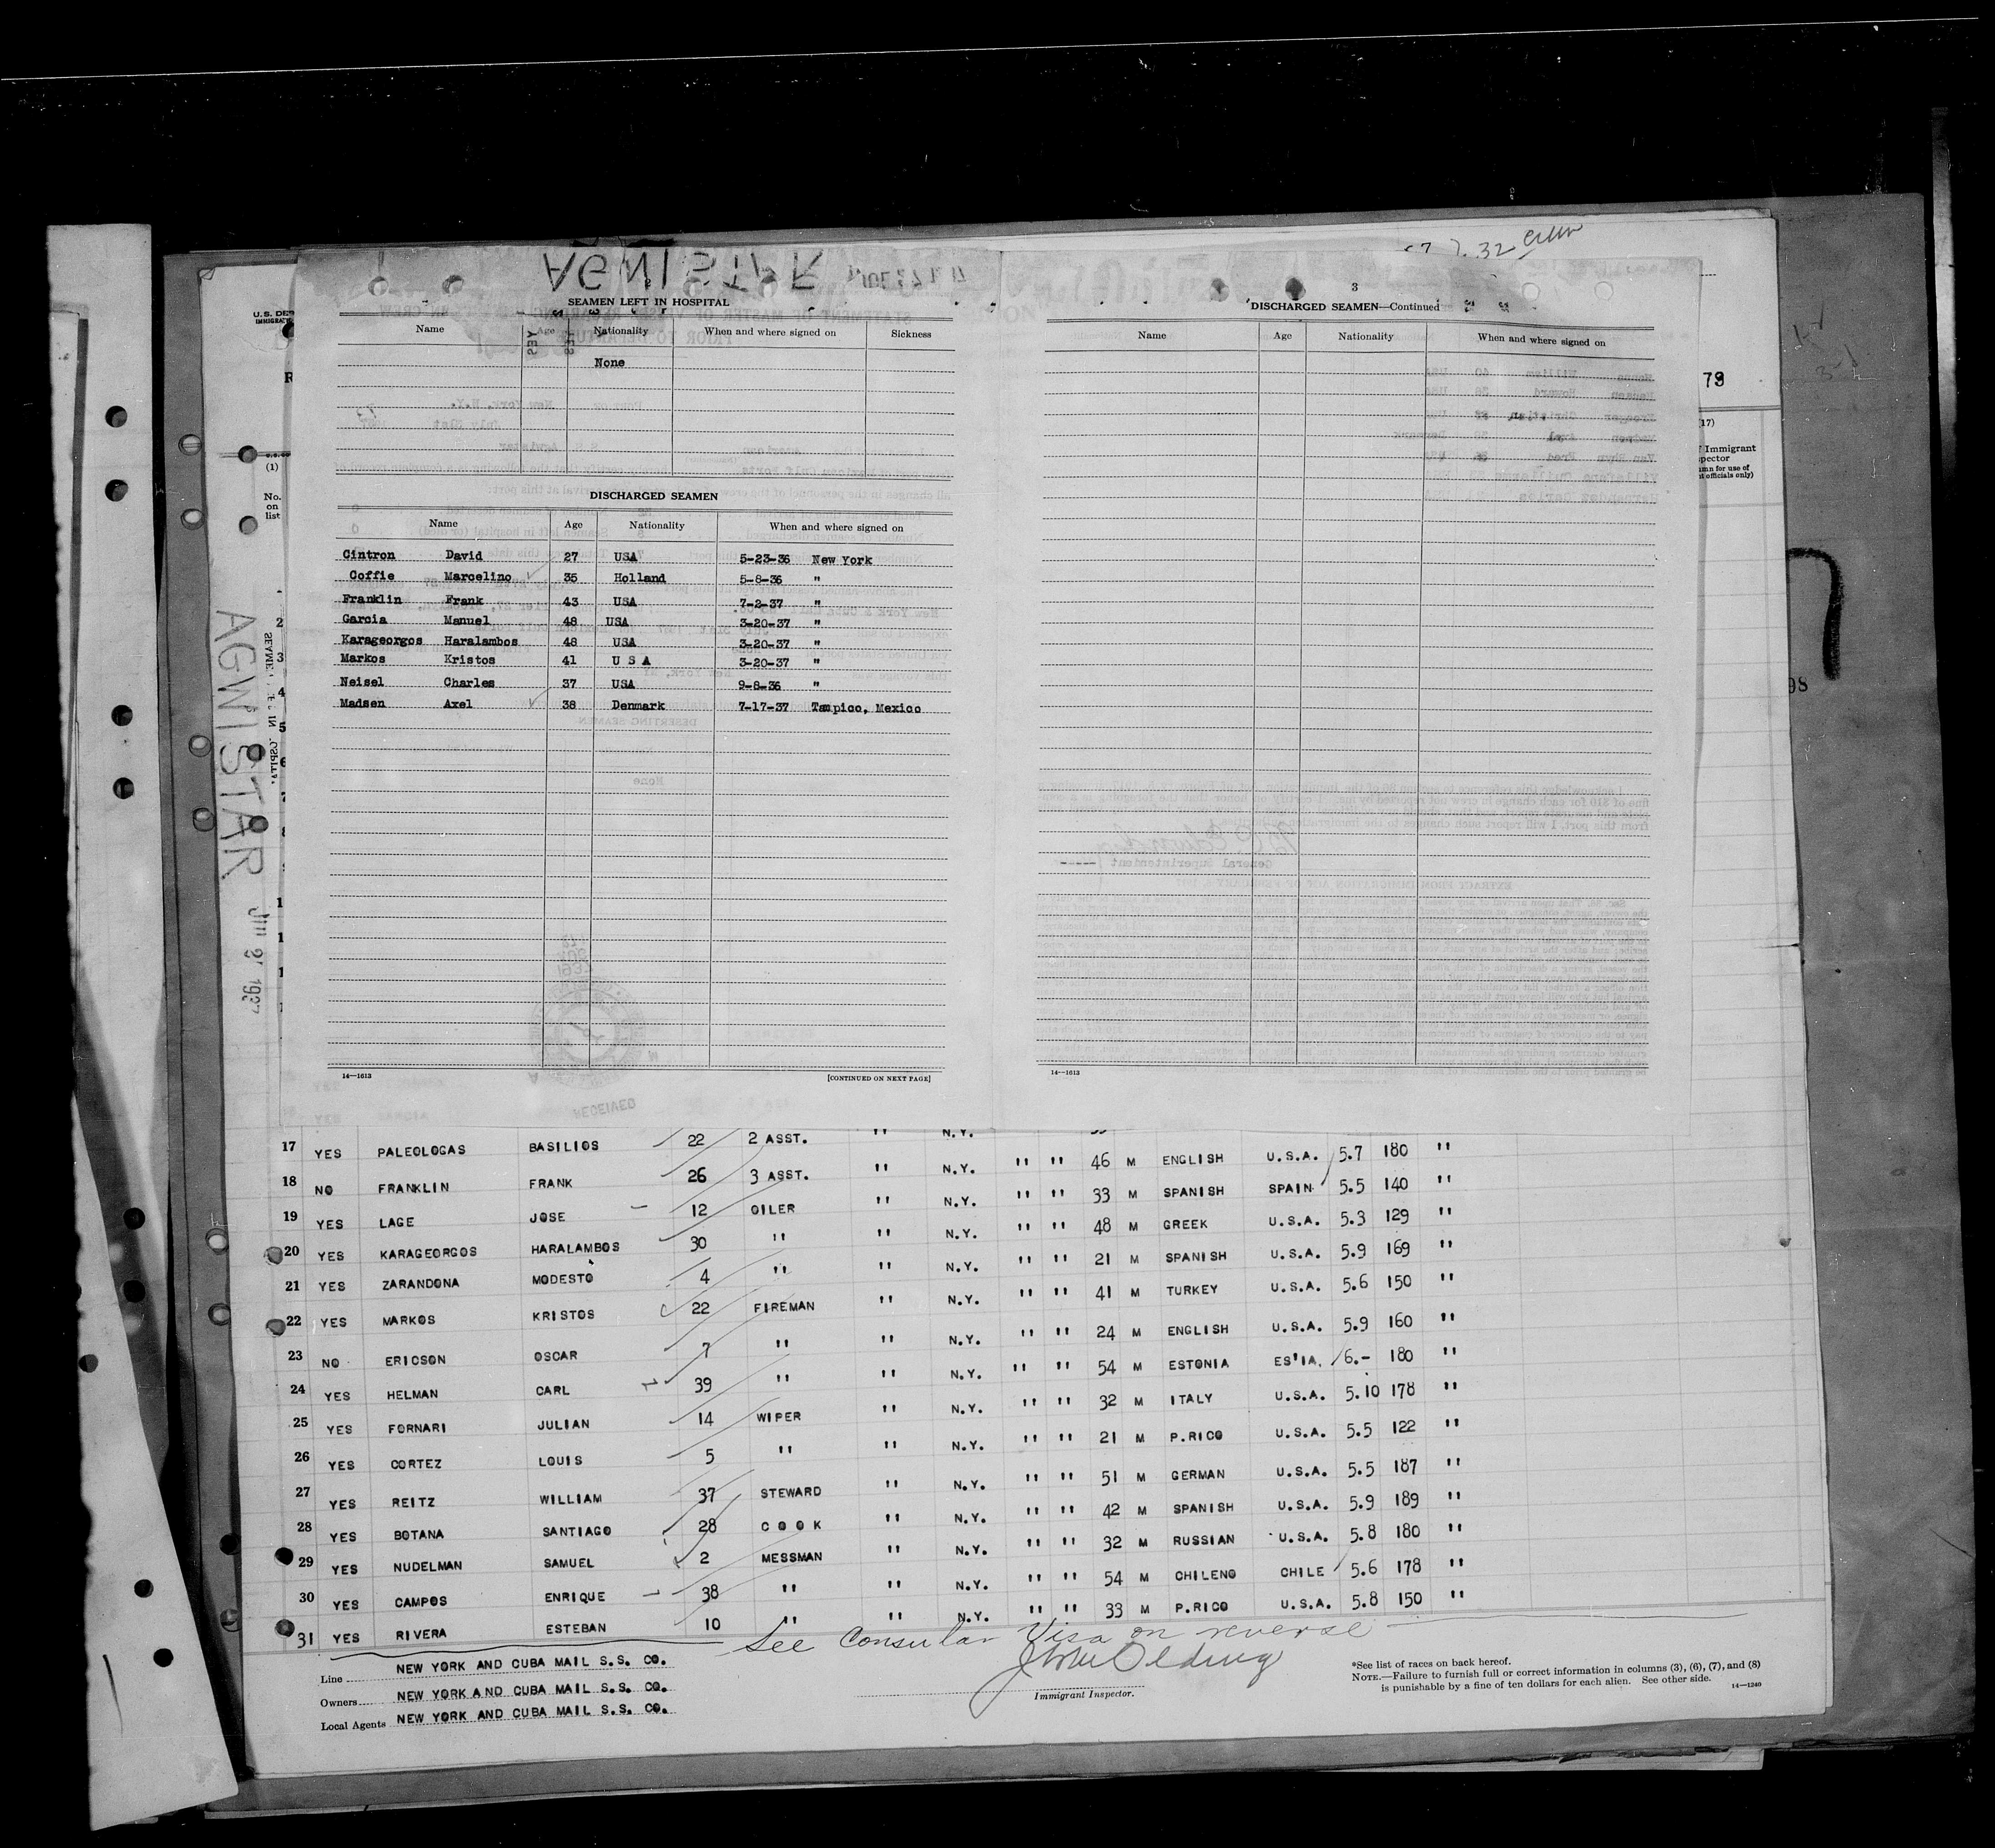 32 crew
AGWISTAR
SEAMEN LEFT IN HOSPITAL
Name Age Nationality When and where signed on Sickness
None
DISCHARGED SEAMEN
Name Age Nationality When and where signed on
Cintron David 27 USA 5-23-36 New York
Coffie Marcelino 35 Holland 5-8-36 "
Franklin Frank 43 USA 7-2-37 "
Garcia Manuel 48 USA 3-20-37 "
Karageorgos Haralambos 48 USA 3-20-37 "
Markos Kristos 41 U S A 3-20-37 "
Neisel Charles 37 USA 9-8-36 "
Madsen Axel 38 Denmark 7-17-37 Tampico, Mexico
14—1613 [CONTINUED ON NEXT PAGE]
3
DISCHARGED SEAMEN—Continued
Name Age Nationality When and where signed on
14—1613
(1)
No. on list
(17)
Immigrant
AGWISTAR
17 YES PALEOLOGAS BASILIOS 22 2 ASST. " N.Y.
18 NO FRANKLIN FRANK 26 3 ASST. " N.Y. " " 46 M ENGLISH U.S.A. 5.7 180 "
19 YES LAGE JOSE 12 OILER " N.Y. " " 33 M SPANISH SPAIN 5.5 140 "
20 YES KARAGEORGOS HARALAMBOS 30 " " N.Y. " " 48 M GREEK U.S.A. 5.3 129 "
21 YES ZARANDONA MODESTO 4 " " N.Y. " " 21 M SPANISH U.S.A. 5.9 169 "
22 YES MARKOS KRISTOS 22 FIREMAN " N.Y. " " 41 M TURKEY U.S.A. 5.6 150 "
23 NO ERICSON OSCAR 7 " " N.Y. " " 24 M ENGLISH U.S.A. 5.9 160 "
24 YES HELMAN CARL 39 " " N.Y. " " 54 M ESTONIA ES'IA. 6.- 180 "
25 YES FORNARI JULIAN 14 WIPER " N.Y. " " 32 M ITALY U.S.A. 5.10 178 "
26 YES CORTEZ LOUIS 5 " " N.Y. " " 21 M P.RICO U.S.A. 5.5 122 "
27 YES REITZ WILLIAM 37 STEWARD " N.Y. " " 51 M GERMAN U.S.A. 5.5 187 "
28 YES BOTANA SANTIAGO 28 COOK " N.Y. " " 42 M SPANISH U.S.A. 5.9 189 "
29 YES NUDELMAN SAMUEL 2 MESSMAN " N.Y. " " 32 M RUSSIAN U.S.A. 5.8 180 "
30 YES CAMPOS ENRIQUE 38 " " N.Y. " " 54 M CHILENO CHILE 5.6 178 "
31 YES RIVERA ESTEBAN 10 " " N.Y. " " 33 M P.RICO U.S.A. 5.8 150 "
See Consular Visa on reverse
Line NEW YORK AND CUBA MAIL S.S. CO.
Owners NEW YORK AND CUBA MAIL S.S. CO.
Local Agents NEW YORK AND CUBA MAIL S.S. CO.
Immigrant Inspector.
*See list of races on back hereof.
NOTE.—Failure to furnish full or correct information in columns (3), (6), (7), and (8)
is punishable by a fine of ten dollars for each alien. See other side.
14—1240